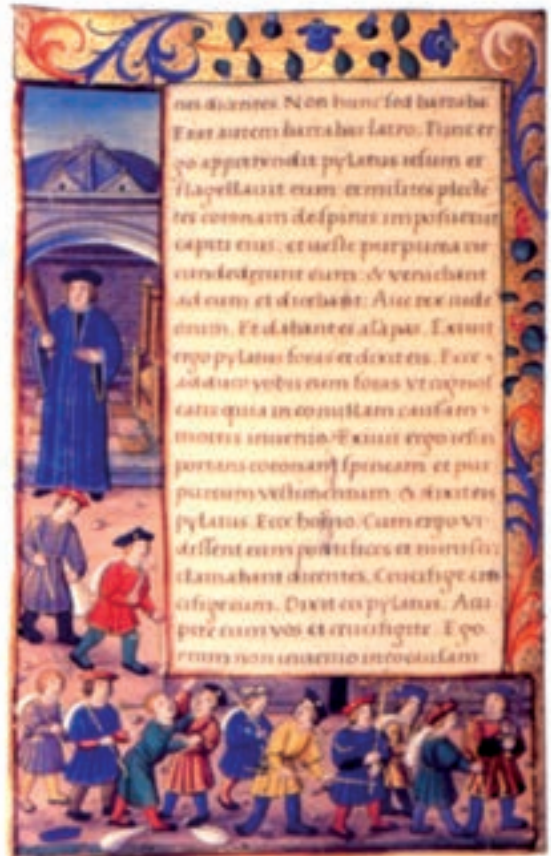 nes dicentes. Non hunc sed barraba
Erat autem barrabas latro. Tunc er
go apprehendit pylatus iesum et
flagellauit eum et milites plecte
tes coronam de spinis imposuerut
capiti eius. et ueste purpurea cir
cundederunt eum. & veniebant
ad eum et dicebant. Aue rex iude
orum. Et dabant ei alapas. Exiuit
ergo pylatus foras et dixit eis. Ecce
adduco vobis eum foras vt cognos
catis quia in eo nullam causam
mortis inuenio. Exiuit ergo iesus
portans coronam spineam et pur
pureum vestimentum. & dixit eis
pylatus. Ecce homo. Cum ergo vi
dissent eum pontifices et ministri
clamabant dicentes. Crucifige cru
cifige eum. Dixit eis pylatus. Acci
pite eum vos et crucifigite. Ego
enim non inuenio in eo causam